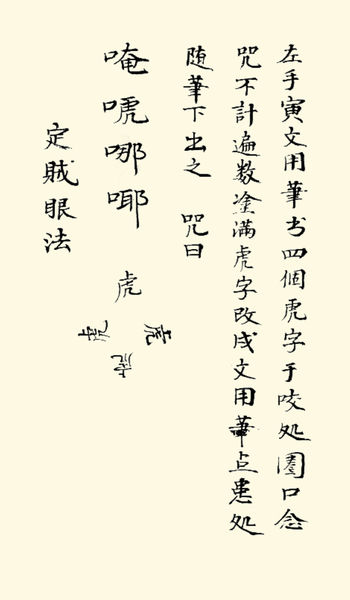 左手寅文用筆书四個虎字于咬处圈口念
咒不計遍数塗满虎字改戌文用筆点患处
随筆下出之 咒曰
唵唬哪哪
虎
虎
虎
虎
定贼眼法